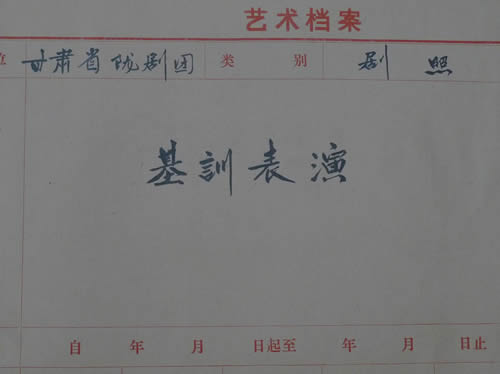 艺术档案
甘肃省陇剧团 类 别 剧 照
基訓表演
自 年 月 日起至 年 月 日止